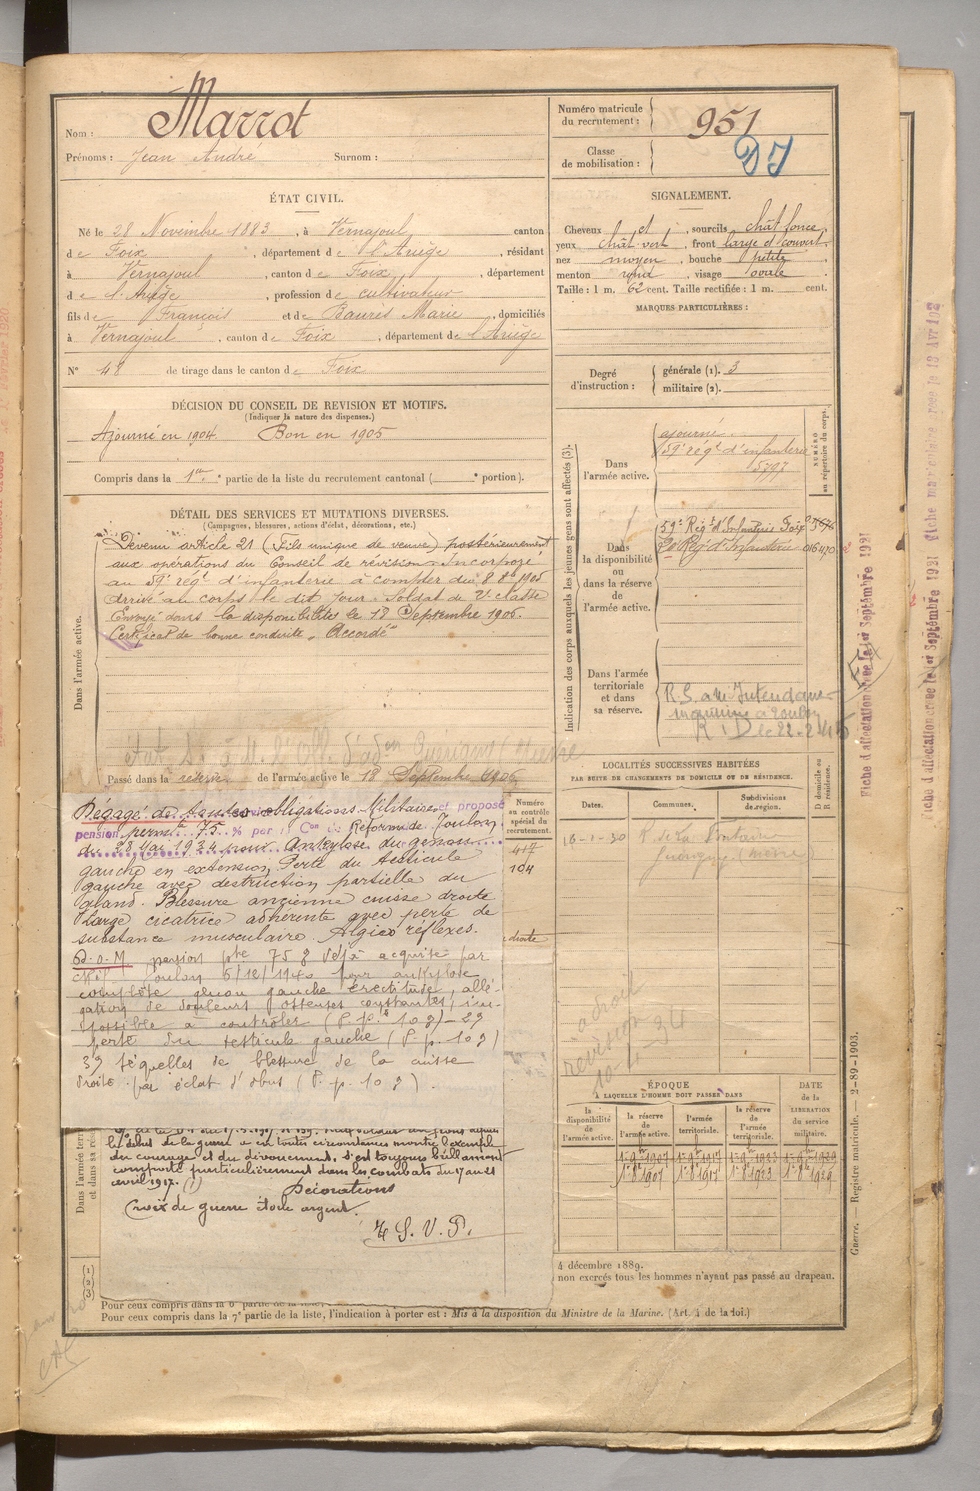 Nom : Marrot
Prénoms : Jean André Surnom :
Numéro matricule du recrutement : 951
Classe de mobilisation :
ÉTAT CIVIL.
Né le 28 Novembre 1883, à Vernajoul, canton
de Foix, département de l'Ariège, résidant
à Vernajoul, canton de Foix, département
de l'Ariège, profession de cultivateur
fils de François et de Baures Marie, domiciliés
à Vernajoul, canton de Foix, département de l'Ariège
N° 48 de tirage dans le canton de Foix
SIGNALEMENT.
Cheveux et, sourcils chât foncé
yeux chât vert, front large et couvert
nez moyen, bouche petite
menton rond, visage ovale
Taille : 1 m. 62 cent. Taille rectifiée : 1 m. cent.
MARQUES PARTICULIÈRES :
Degré d'instruction : générale (1). 3
militaire (2).
DÉCISION DU CONSEIL DE REVISION ET MOTIFS.
(Indiquer la nature des dispenses.)
Ajourné en 1904 Bon en 1905
Compris dans la 1ère partie de la liste du recrutement cantonal ( e portion).
DÉTAIL DES SERVICES ET MUTATIONS DIVERSES.
(Campagnes, blessures, actions d'éclat, décorations, etc.)
Dans l'armée active.
Devenu article 21 (Fils unique de veuve) postérieurement
aux opérations du Conseil de révision. Incorporé
au 59e régt d'infanterie à compter du 8 8bre 1905
Arrivé au corps le dit jour. Soldat de 2e classe
Envoyé dans la disponibilité le 18 Septembre 1906.
Certificat de bonne conduite "Accordé"
Passé dans la réserve de l'armée active le 18 Septembre 1906
Indication des corps auxquels les jeunes gens sont affectés (3).
NUMÉRO au répertoire du corps.
Dans l'armée active.
ajourné
59e régt d'infanterie
5797
Dans la disponibilité ou dans la réserve de l'armée active.
59e Régt d'Infanterie Foix
Régt d'Infanterie 016470
Dans l'armée territoriale et dans sa réserve.
R.S. a M. Intendance
maritime a Toulon
Dégagé de toutes obligations Militaires et proposé
pension perm. 75 % par la Con de Réforme de Toulon
du 28 Mai 1934 pour Ankylose du genou
gauche en extension. Perte du testicule
gauche avec destruction partielle du
gland. Blessure ancienne cuisse droite
Large cicatrice adhérente avec perte de
substance musculaire. Algies réflexes.
pension pte 75 % déjà acquise par
Toulon 5/12/1940 pour ankylose
complète genou gauche rectitude, allé-
gation de douleurs osseuses constantes, im-
possible à contrôler (P. p. 10 %) - 2°
perte du testicule gauche (P. p. 10 %)
3° séquelles de blessure de la cuisse
droite par éclat d'obus (P. p. 10 %).
Numéro au contrôle spécial du recrutement.
417
104
droite
le début de la guerre a en toutes circonstances montré l'exemple
du courage et du dévouement. S'est toujours brillamment
comporté particulièrement dans les combats du 17 au 21
avril 1917. (1)
Décorations
Croix de guerre étoile argent.
T. S. V. P.
LOCALITÉS SUCCESSIVES HABITÉES
PAR SUITE DE CHANGEMENTS DE DOMICILE OU DE RÉSIDENCE.
Dates. Communes. Subdivisions de région. D domicile ou R résidence.
R. de La Fontaine
Guérigny (Nièvre)
a droit
revision
ÉPOQUE
À LAQUELLE L'HOMME DOIT PASSER DANS
la disponibilité de l'armée active. la réserve de l'armée active. l'armée territoriale. la réserve de l'armée territoriale.
DATE de la LIBÉRATION du service militaire.
1er 8bre 1907 1er 8bre 1917 1er 8bre 1923 1er 8bre 1929
4 décembre 1889.
non exercés tous les hommes n'ayant pas passé au drapeau.
(1)
(2)
(3)
Pour ceux compris dans la 6e partie de la liste,
Pour ceux compris dans la 7e partie de la liste, l'indication à porter est : Mis à la disposition du Ministre de la Marine. (Art. 4 de la loi.)
Guerre. — Registre matricule. — 2-89-1903.
Fiche d'affectation créée le 1er Septembre 1921
Fiche d'affectation créée le 1er Septembre 1921 Fiche matriculaire